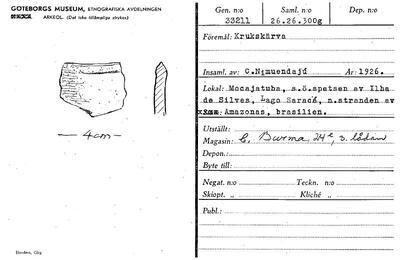 GÖTEBORGS MUSEUM, ETNOGRAFISKA AVDELNINGEN
ARKEOL. (Det icke tillämpliga strykes)
— 4cm —
Elanders, Gbg
Gen. n:o Saml. n:o Dep. n:o
33211 26.26.300g
Föremål: Krukskärva
Insaml. av: C.Nimuendajú År: 1926.
Lokal: Mocajatuba, s.ö.spetsen av Ilha
de Silves, Lago Saracá, n.stranden av
Amazonas, brasilien.
Utställt:
Magasin: C. Burma, 24e, 3. lådan
Depon.:
Byte till:
Negat. n:o Teckn. n:o
Skiopt. „ Kliché „
Publ.: